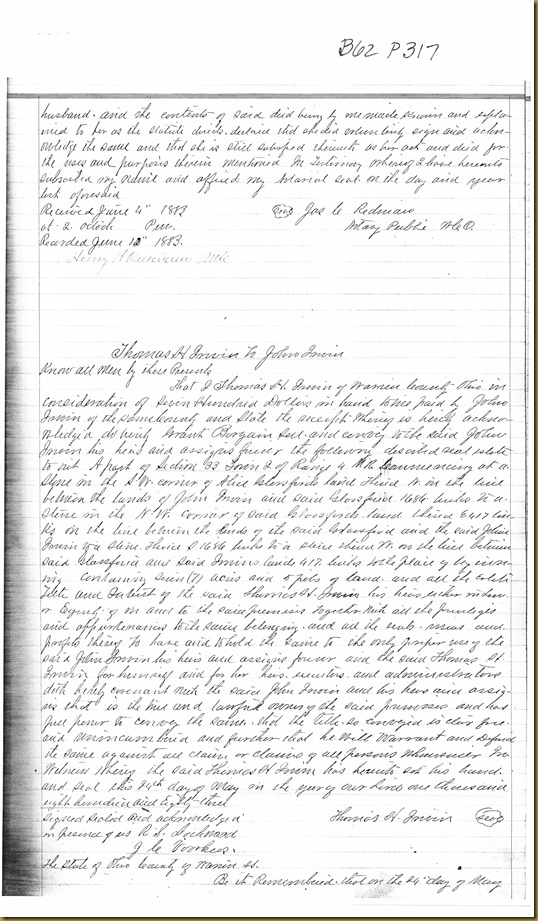 B62 P317
husband. and the contents of said deed being by me made known and explai-
ned to her as the statute directs. declared that she did voluntarily sign and ackn-
owledge the same and that she is still satisfied therewith as her act and deed for
the uses and purposes therein mentioned In Testimony whereof I have hereunto
subscribed my name and affixed my Notarial seal on the day and year
last aforesaid
Received June 4" 1883 Seal Jas C Redman
at 2. oclock P.m. Notary Public W.C.O.
Recorded June 12" 1883.
Thomas H Irwin to John Irwin
Know all Men by these Presents
That I Thomas H. Irwin of Warren County Ohio in
consideration of Seven Hundred Dollars in hand to me paid by John
Irwin of the same county and State the receipt whereof is hereby ackno-
wledged do hereby Grant Bargain Sell and convey to the said John
Irwin his heirs and assigns forever the following described real estate
to wit A part of Section 33 Town 2 of Range 4 M.R. Commencing at a
stone in the S.W. corner of Alice Glossfords land thence N. on the line
between the lands of John Irwin and said Glossford 1686 links to a
stone in the N.W. corner of said Glossfords land thence E 417 lin-
ks on the line between the lands of the said Glossford and the said John
Irwin to a stone. Thence S 1686 links to a stone thence W. on the line between
said Glossford and said Irwins lands 417 links to the place of beginn-
ing containing seven (7) acres and poles of land. and all the Estate
Title and Interest of the said Thomas H. Irwin his heirs either in Law
or Equity of in and to the said premises together with all the privileges
and appurtenances to the same belonging. and all the rents. issues and
profits thereof To have and to hold the same to the only proper use of the
said John Irwin his heirs and assigns forever and the said Thomas H.
Irwin for himself and for his heirs. executors. and administrators
doth hereby covenant with the said John Irwin and his heirs and assig-
ns that is the true and lawful owner of the said premises and has
full power to convey the same. that the title so conveyed is clear free
and unincumbered and further that he Will Warrant and Defend
the same against all claim or claims of all persons whomsoever In
Witness Whereof the said Thomas H Irwin has hereunto set his hand.
and seal this 24th day of May in the year of our Lord one thousand
eight hundred and eighty three
signed sealed and acknowledged Thomas H. Irwin Seal
in presence of us R. S. Lockwood
J C Voorhes.
The State of Ohio County of Warren ss.
Be it Remembered that on the 24" day of May